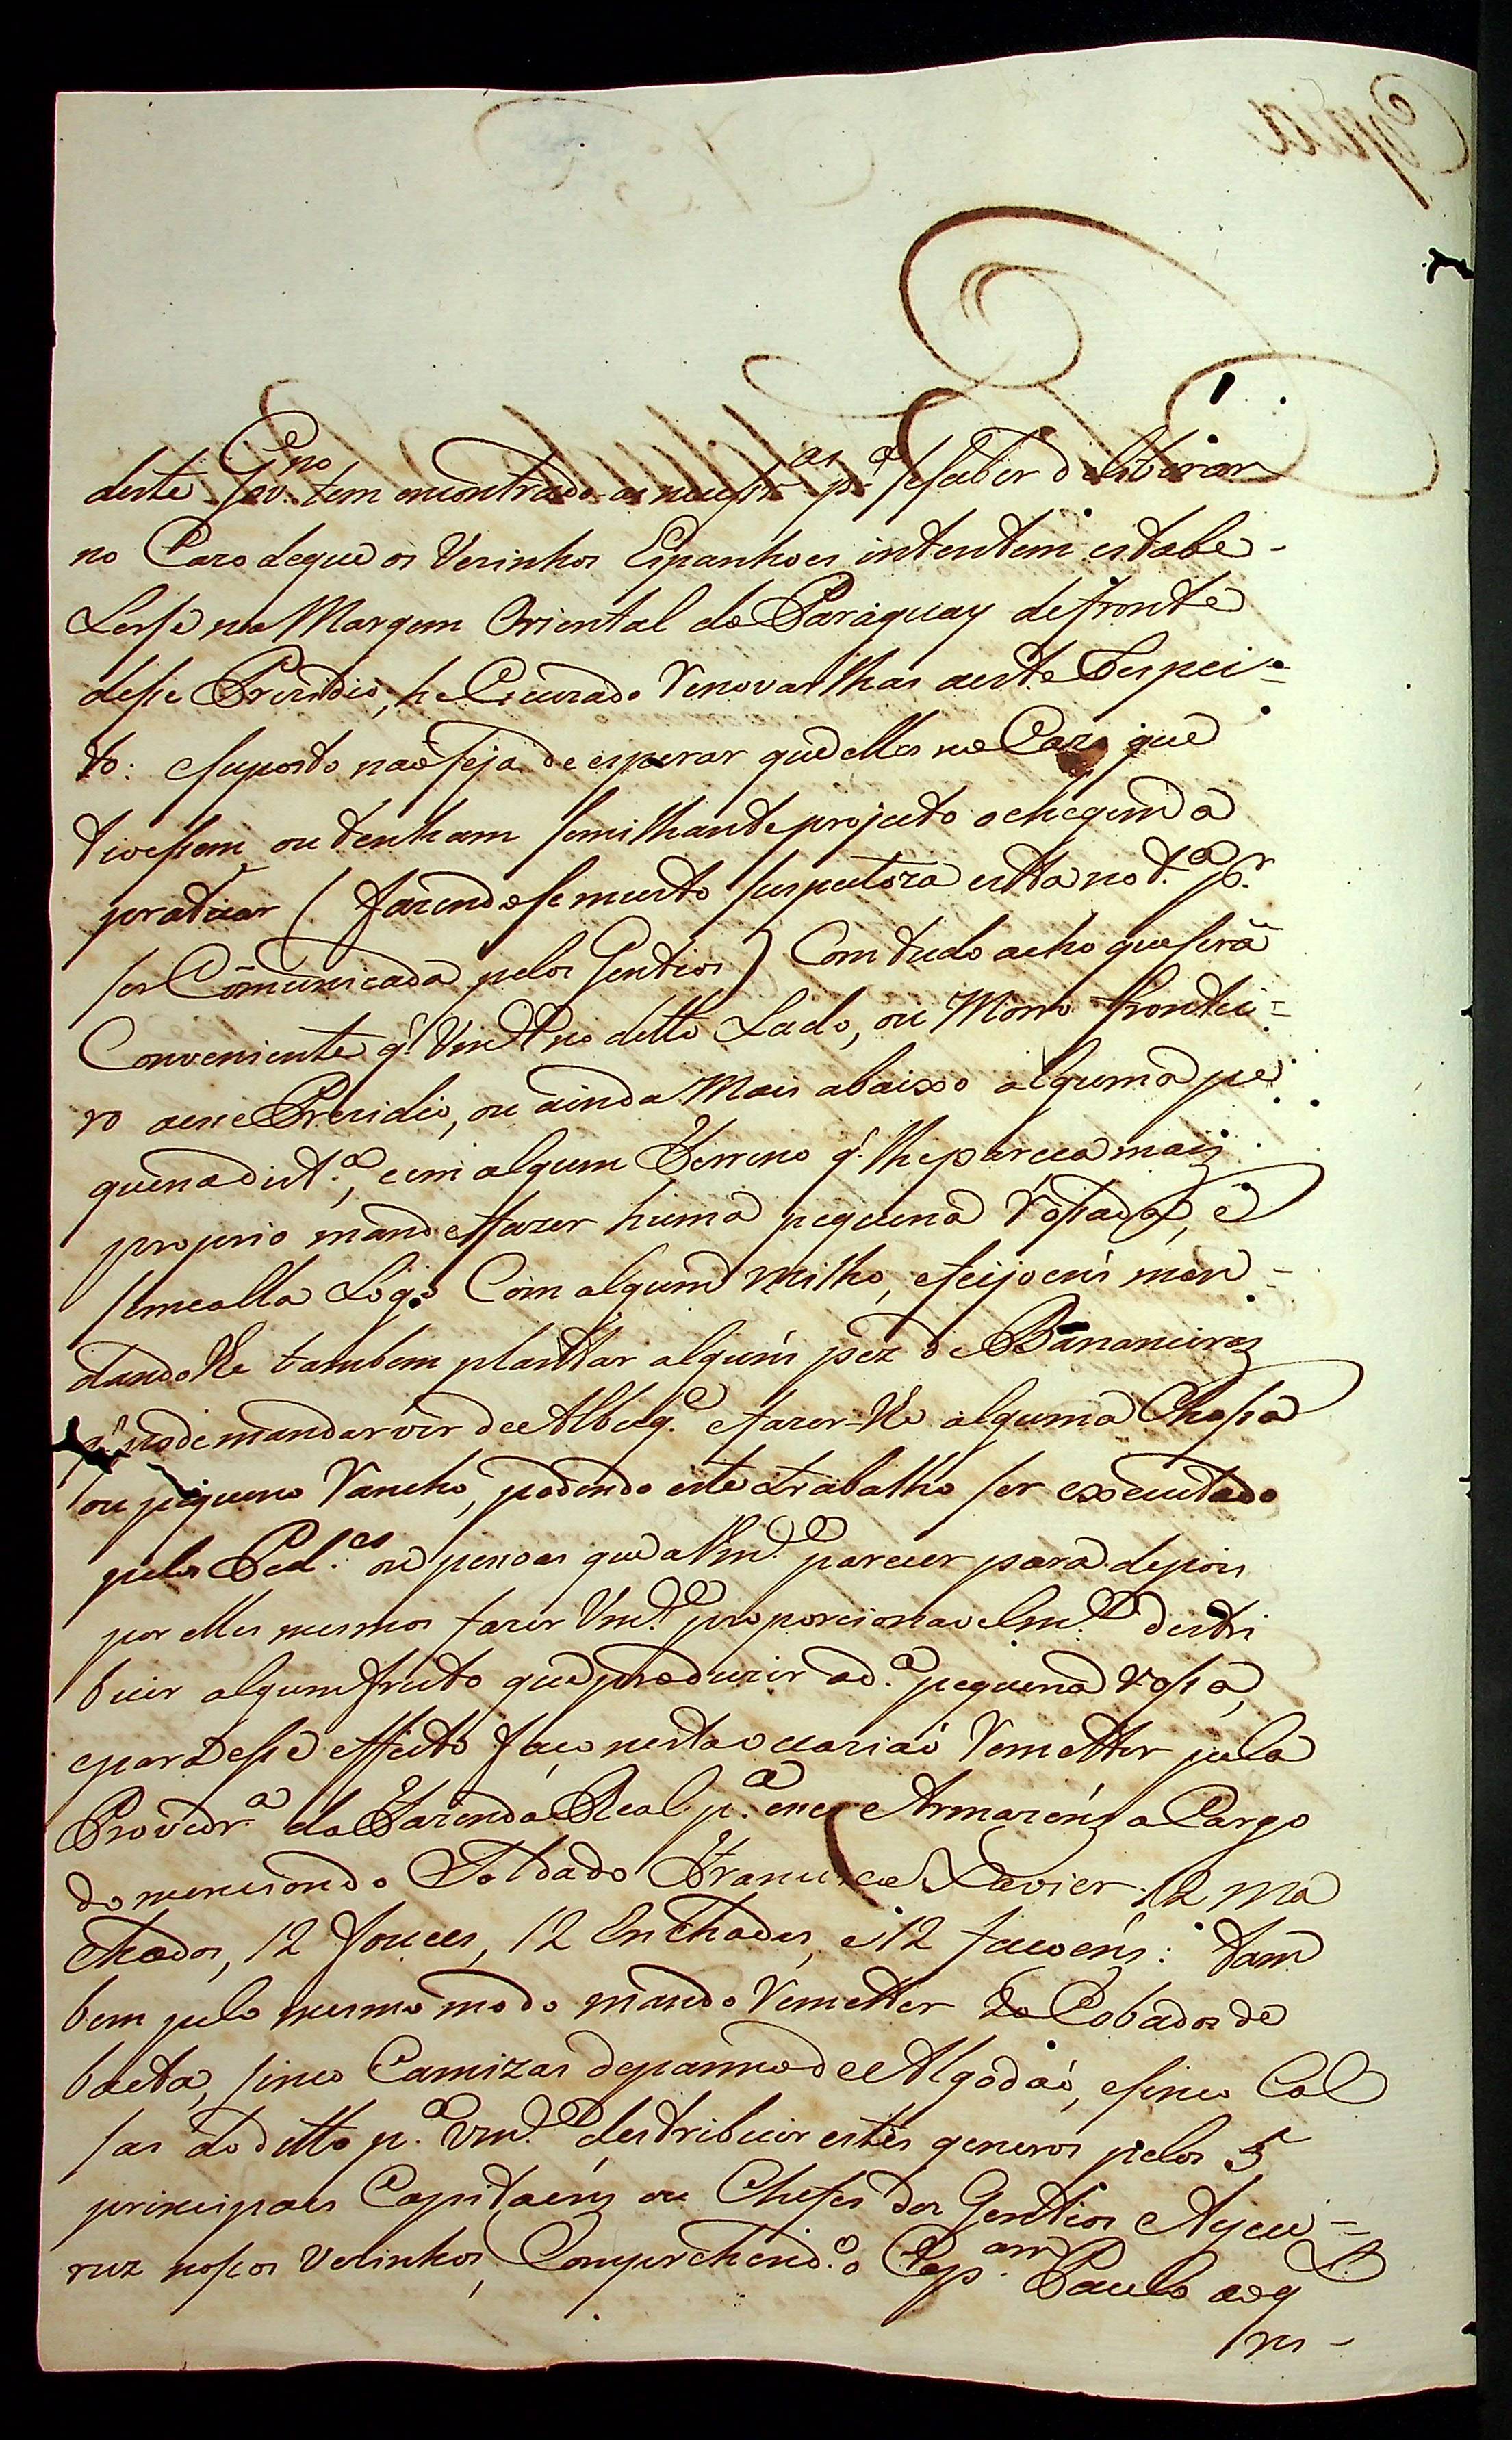 deste Gov.no tem encontrado as necess.as p.a se saber deliberar
no Cazo de que os Vezinhos Espanhoes intentem estabe-
Lerse na Margem Oriental do Paraguay defronte
desse Prezidio, he Escuzado renovarlhas a este Respei-
to: e suposto naõ seja de esperar que elles no Cazo que
tivessem ou tenham semilhante projecto o cheguem a
praticar (fazendose muito suspeitoza esta not.a p.r
ser Cõmunicada pelos Gentios) Com tudo acho que será
Conveniente q' Vm.ce no ditto Lado, ou Morro frontei=
ro a esse Prezidio, ou ainda Mais abaixo alguma pe
quena dist.a, e em algum Terreno q' lhe pareça mais
proprio mande fazer huma pequena rossada, e
semealla Logo Com algum milho, e feijoens man=
dandolhe tambem plantar alguns péz de Bananeiras
q' pode mandar vir de Albuq.e e fazer-lhe alguma Chossa
ou piqueno rancho, podendo este trabalho ser executado
pelos Ped.es ou pessoas que a Vm.ce parecer para depois
por elles mesmos fazer Vm.ce proporcionavelm.te destri
buir algum fruto que produzir a d.a pequena rossa,
e para esse effeito faço nesta occaziaõ remetter pela
Provedr.a da Fazenda Real p.a esses Armazens a Cargo
do mencionado Soldado Francisco Xavier 12 Ma
chados, 12 fouces, 12 Enchadas, e 12 facoens: tam
bem pelo mesmo modo mando remetter 20 Cobados de
baeta, sinco Camizas de panno de Algodaõ, e sinco Cal
sas do ditto p.a Vm.ce destribuir estes generos pelos 5
principaes Capitaens ou Chefes dos Gentios Aycu=
ruz nossos Vezinhos, Comprehend.o o Cap.am Paulo a o q
res-